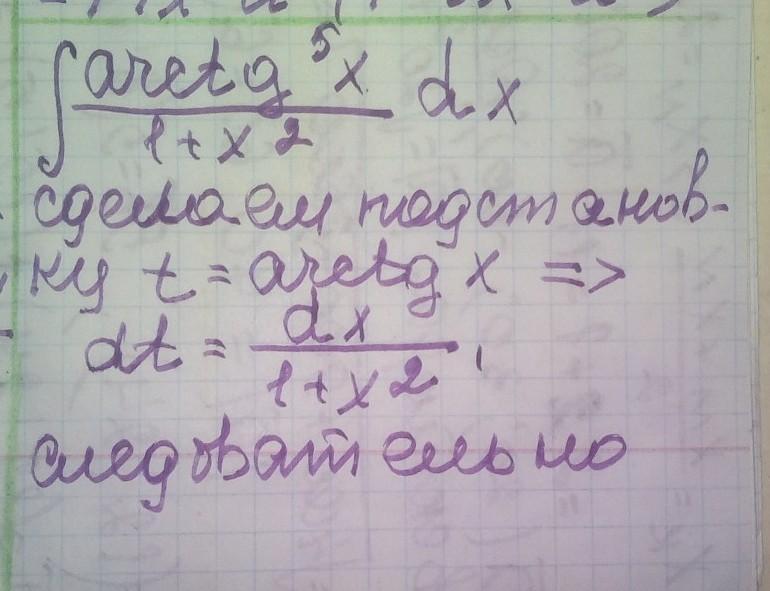 ∫ arctg⁵x / 1+x² dx
сделаем подстанов-
ку t = arctg x =>
dt = dx / 1+x² ,
следовательно